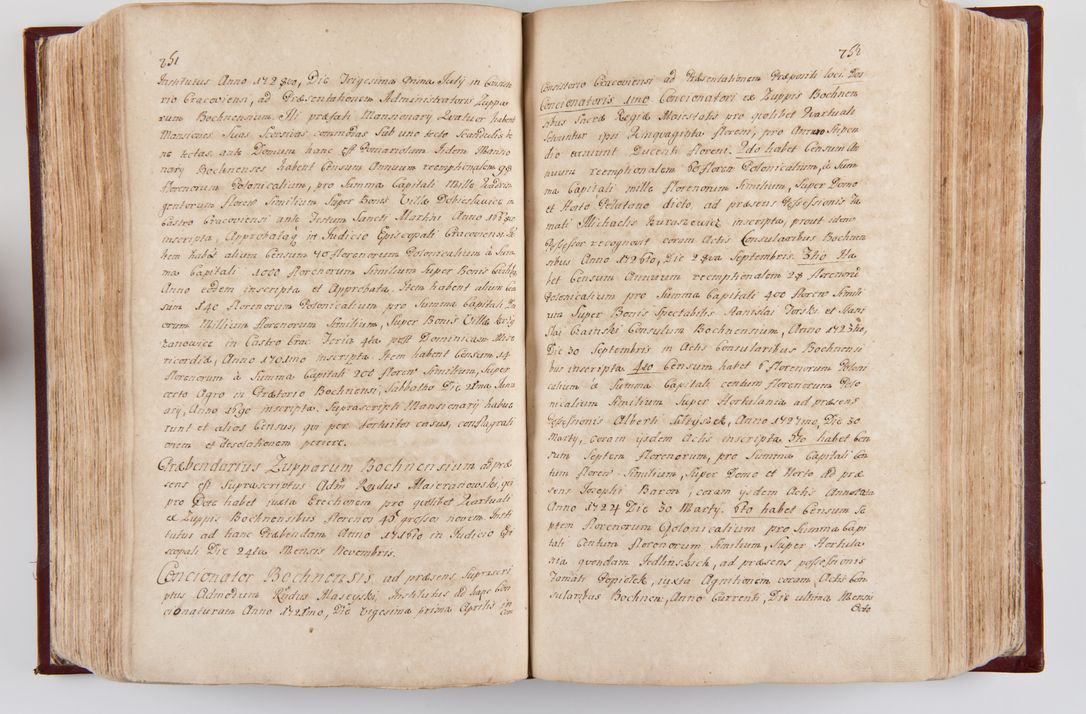 751
Institutus Anno 1728vo, Die Trigesima Prima Julij in Consisto
rio Cracoviensi, ad Præsentationem Administratoris Zuppa
rum Bochnensium. Hi præfati Mansionarij Quatuor habent
Mansiones Suas Seorsivas commodas Sub uno tecto Scandulis be
ne tectas, ante Domum hanc est Pomariolum. Iidem Mansio
narij Bochnenses habent Censum Annuum reemptionalem 98
florenorum Polonicalium, pro Summa Capitali Mille Quadrin
gentorum floren Similium Super Bonis Villæ Dobieslavice in
Castro Cracoviensi ante Festum Sancti Mathiæ Anno
inscripta, Approbataq in Judicio Episcopali Cracoviensi. I
tem habet alium Censum 70 florenorum Polonicalium à Sum
ma Capitali 1000 florenorum Similium Super Bonis
Anno eodem inscripta et Approbata. Item habent alium Cen
sum 140 florenorum Polonicalium pro Summa Capitali Du
orum Millium florenorum Similium, Super Bonis Villæ Krzy
żanowice in Castro Crac Feria 4ta post Dominicam Mise
ricordiæ, Anno 1701mo inscripta. Item habent Censum 14
florenorum à Summa Capitali 200 floren Similium, Super
certo Agro in Prætorio Bochnensi, Sabbatho Die 21ma Janu
arij, Anno 1690 inscripta. Suprascripti Mansionarij habue
runt et alios Census, qui per fortuitos casus, conflagrati
onem et desolationem periere.
Præbendarius Zupparum Bochnensium ad præ
sens est Suprascriptus Adm Rndus Maseranowski, qui
pro Dote habet iuxta Erectionem pro quolibet Quartuali
ex Zuppis Bochnensibus florenos 45 grossos novem. Insti
tutus ad hanc Præbendam Anno 1715to in Judicio Epi
scopali Die 24ta Mensis Novembris.
Concionator Bochnensis, ad præsens Suprascri
ptus Admodum Rndus Maseyski, Institutus ad hanc Con
cionaturam Anno 1721mo, Die Vigesima prima Aprilis in
Con
752
Consistorio Cracoviensi ad Præsentationem Præpositi loci. Dos
Concionatoris 1mo Concionatori ex Zuppis Bochnen
sibus Sacræ Regiæ Majestatis pro quolibet Quartuali
Solvuntur ipsi Quinquaginta floreni, pro Annuo Stipen
dio veniunt Ducenti floreni. 2do habet Censum An
nuum reemptionalem 80 floren Polonicalium, à Sum
ma Capitali mille florenorum Similium, Super Domo
et Horto Pelutano dicto, ad præsens Possessionis Fa
mati Michaelis Kuraszewicz inscripta, prout idem
Possessor recognovit coram Actis Consularibus Bochnen
sibus Anno 1726to, Die 28va Septembris. 3tio Ha
bet Censum Annuum reemptionalem 28 florenoru
Polonicalium pro Summa Capitali 400 floren Simili
um Super Bonis Spectabilis Stanislai Torski et Stani
slai Czainski Consulum Bochnensium, Anno 1723tio,
Die 30 Septembris in Actis Consularibus Bochnensi
bus inscripta 4to Censum habet 6 florenorum Poloni
calium à Summa Capitali centum florenorum Polo
nicalium Similium Super Hortulania ad præsens
Possessionis Alberti Strzyszek, Anno 1727mo, Die 30
Martij, coram ijsdem Actis inscripta. 5to habet Cen
sum Septem florenorum, pro Summa Capitali Cen
tum floren Similium, Super Domo et Horto ad præ
sens Josephi Baron, coram ijsdem Actis Annotata
Anno 1724 Die 30 Martij. 6to habet Censum Se
ptem florenorum Polonicalium pro Summa Capi
tali Centum florenorum Similium, Super Hortula
nia quondam Jedlinszek, ad præsens possessionis
Famati Popiołek, iuxta Agnitionem coram Actis Con
sularibus Bochnen, Anno Currenti, Die ultima Mensis
Octo